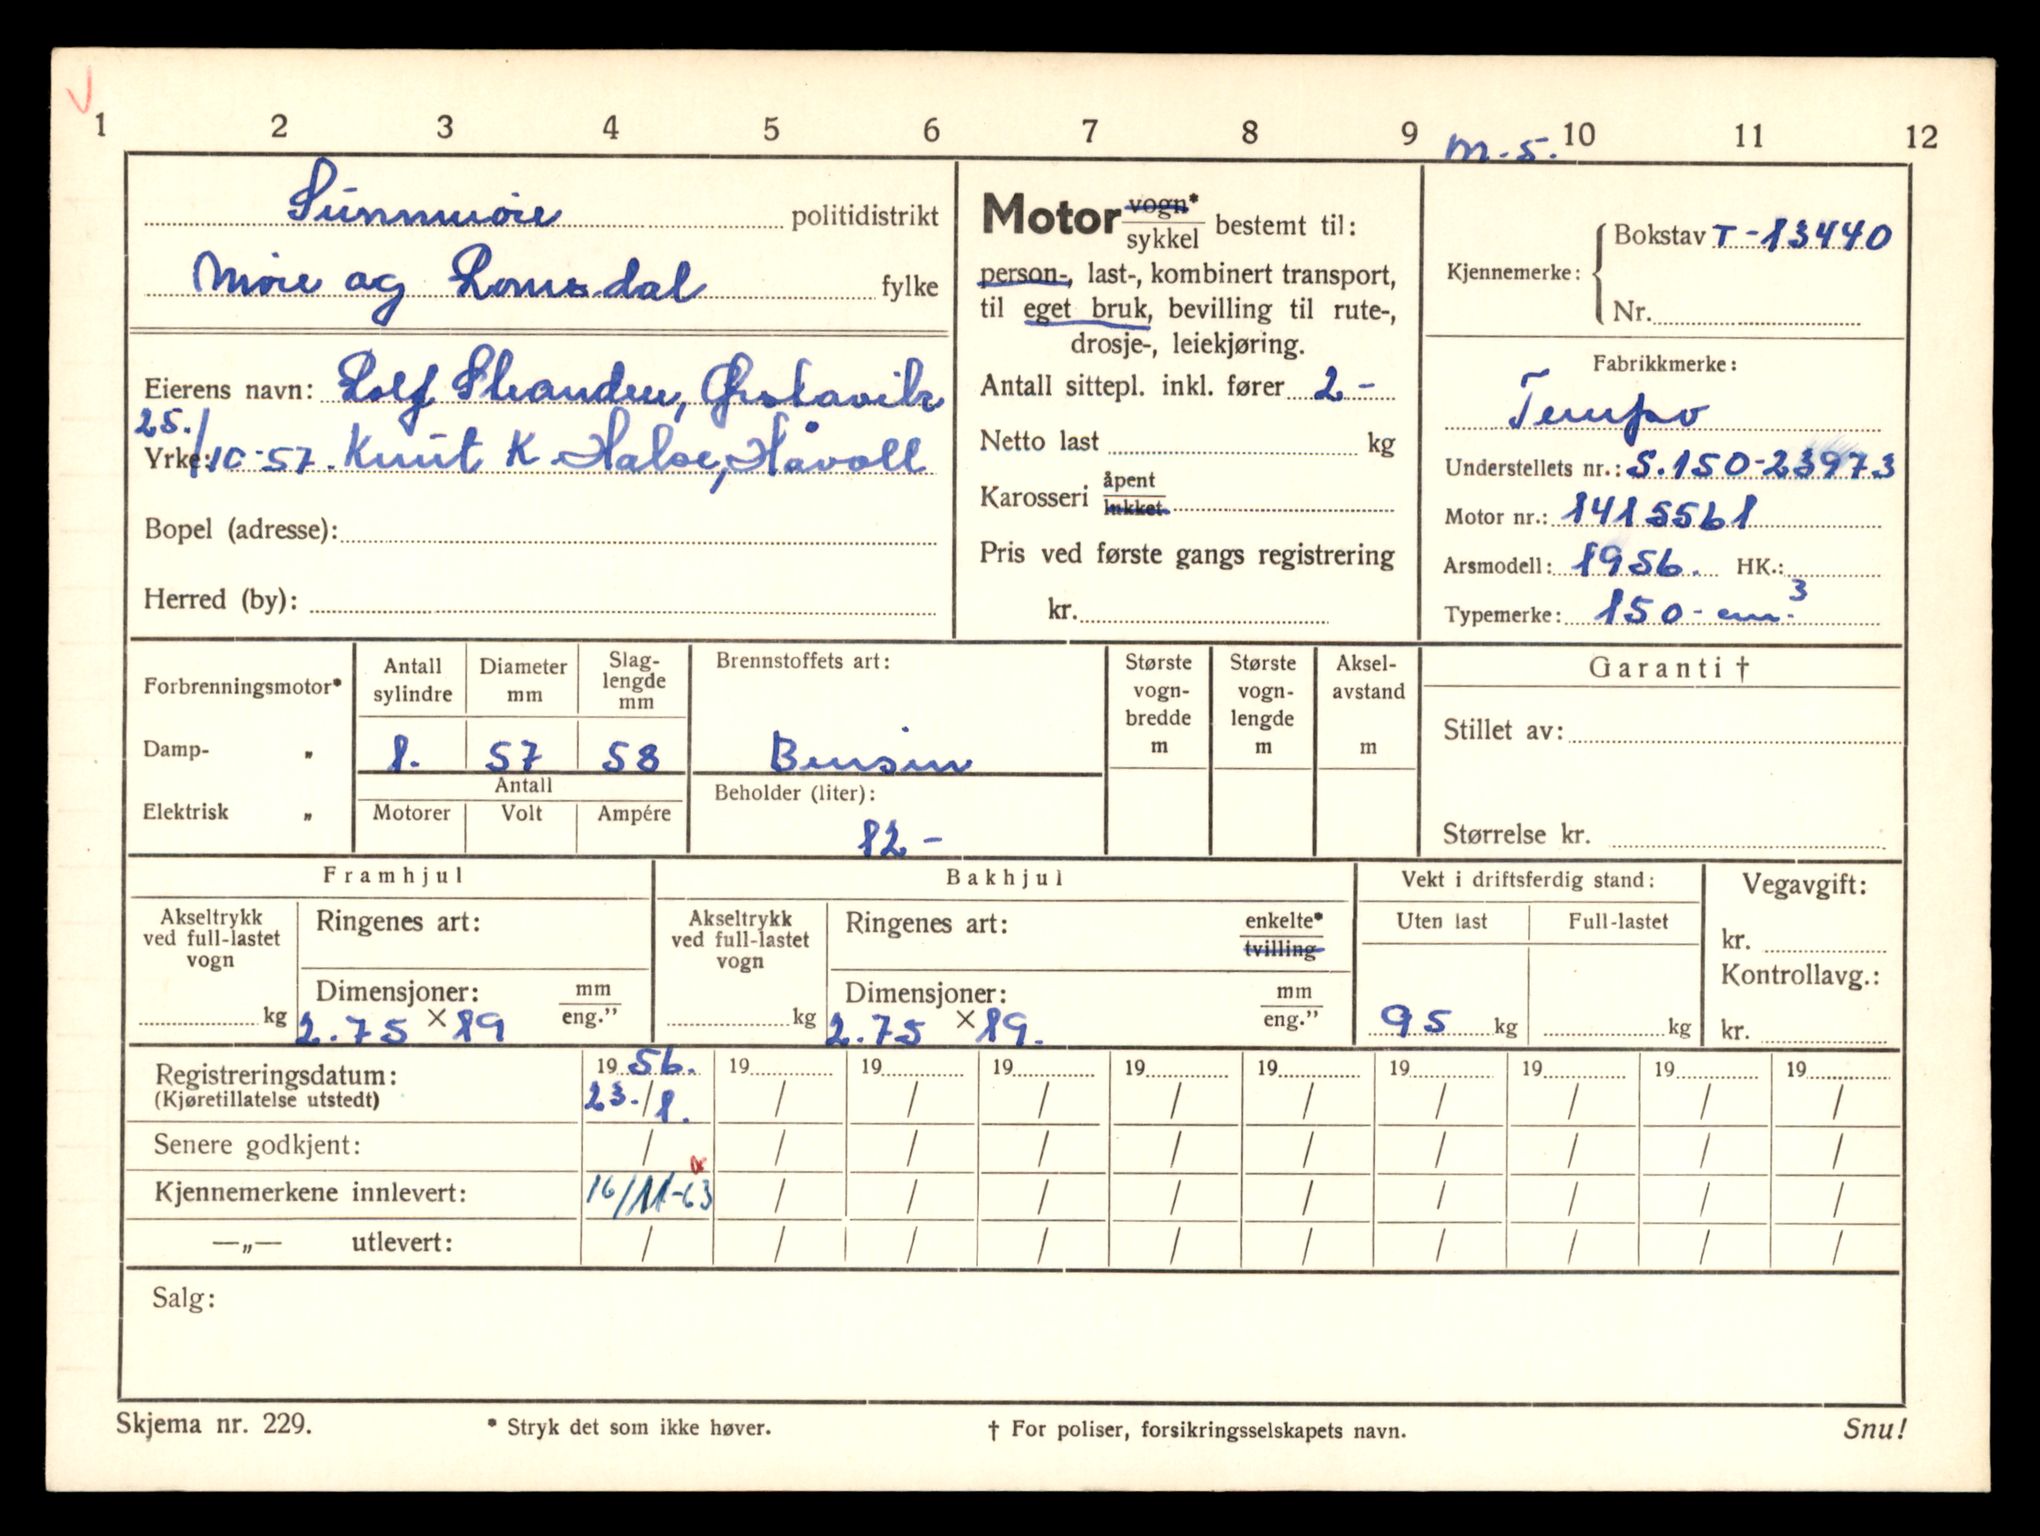 1 2 3 4 5 6 7 8 9 10 11 12
m.s.
Sunnmøre politidistrikt
Møre og Romsdal fylke
Eierens navn: Rolf Strandene, Ørstavik
25./10-57. Knut K. Halse, Håvoll
Yrke:
Bopel (adresse):
Herred (by):
Motor vogn* / sykkel bestemt til:
person-, last-, kombinert transport,
til eget bruk, bevilling til rute-,
drosje-, leiekjøring.
Antall sittepl. inkl. fører 2-
Netto last kg
Karosseri åpent / lukket
Pris ved første gangs registrering
kr.
Kjennemerke: Bokstav T-13440
Nr.
Fabrikkmerke:
Tempo
Understellets nr.: S.150-23973
Motor nr.: 1415561
Arsmodell: 1956. HK.:
Typemerke: 150-cm.3
Forbrenningsmotor*
Damp- „
Elektrisk „
Antall sylindre
1.
Diameter mm
57
Slag-
lengde
mm
58
Antall
Motorer Volt Ampére
Brennstoffets art:
Bensin
Beholder (liter):
12-
Største
vogn-
bredde
m
Største
vogn-
lengde
m
Aksel-
avstand
m
Garanti †
Stillet av:
Størrelse kr.
Framhjul
Akseltrykk
ved full-lastet
vogn
kg
Ringenes art:
Dimensjoner: mm / eng."
2.75 × 19
Bakhjul
Akseltrykk
ved full-lastet
vogn
kg
Ringenes art: enkelte* / tvilling
Dimensjoner: mm / eng."
2.75 × 19.
Vekt i driftsferdig stand:
Uten last Full-lastet
95 kg kg
Vegavgift:
kr.
Kontrollavg.:
kr.
Registreringsdatum: 19 56. 19 19 19 19 19 19 19 19 19
(Kjøretillatelse utstedt) 23./1. / / / / / / / / /
Senere godkjent: / / / / / / / / / /
Kjennemerkene innlevert: 16/11-63 / / / / / / / / /
—„— utlevert: / / / / / / / / / /
Salg:
Skjema nr. 229. * Stryk det som ikke høver. † For poliser, forsikringsselskapets navn. Snu!